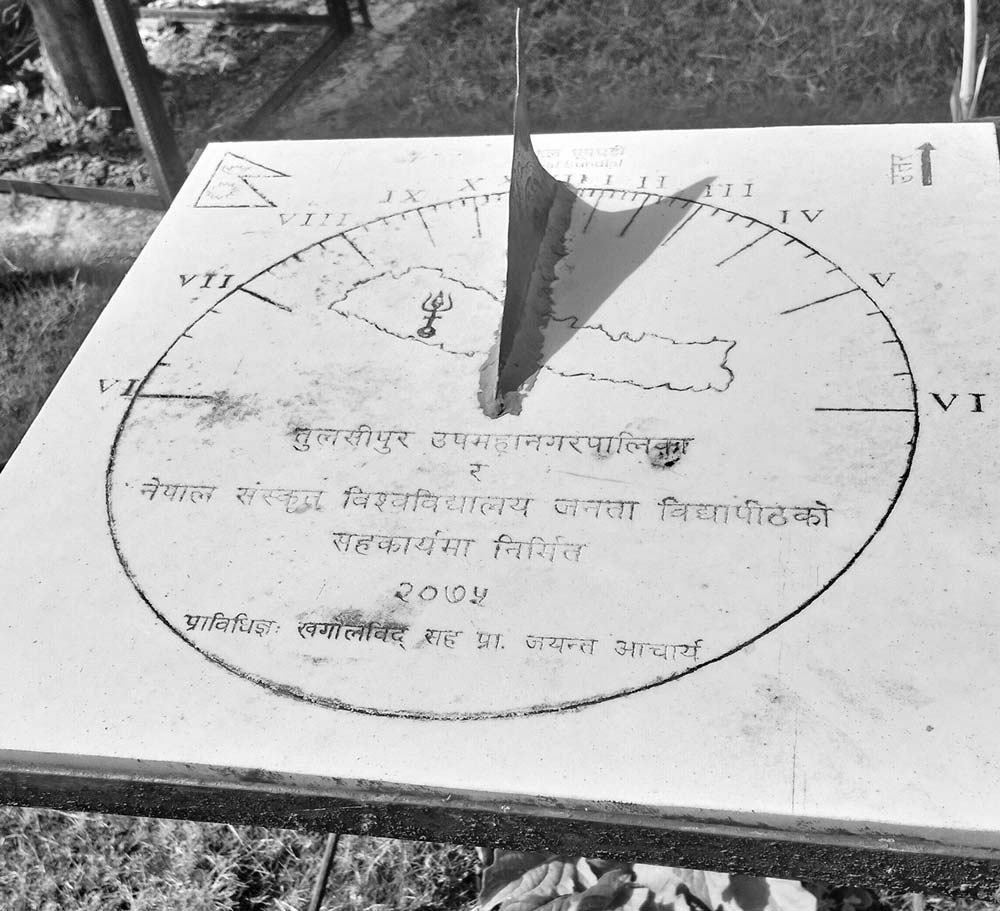 उत्तर
VI VII VIII IX X I II III IV V VI
तुलसीपुर उपमहानगरपालिका
र
नेपाल संस्कृत विश्वविद्यालय जनता विद्यापीठको
सहकार्यमा निर्मित
२०७५
प्राविधिज्ञः खगोलविद् सह प्रा. जयन्त आचार्य